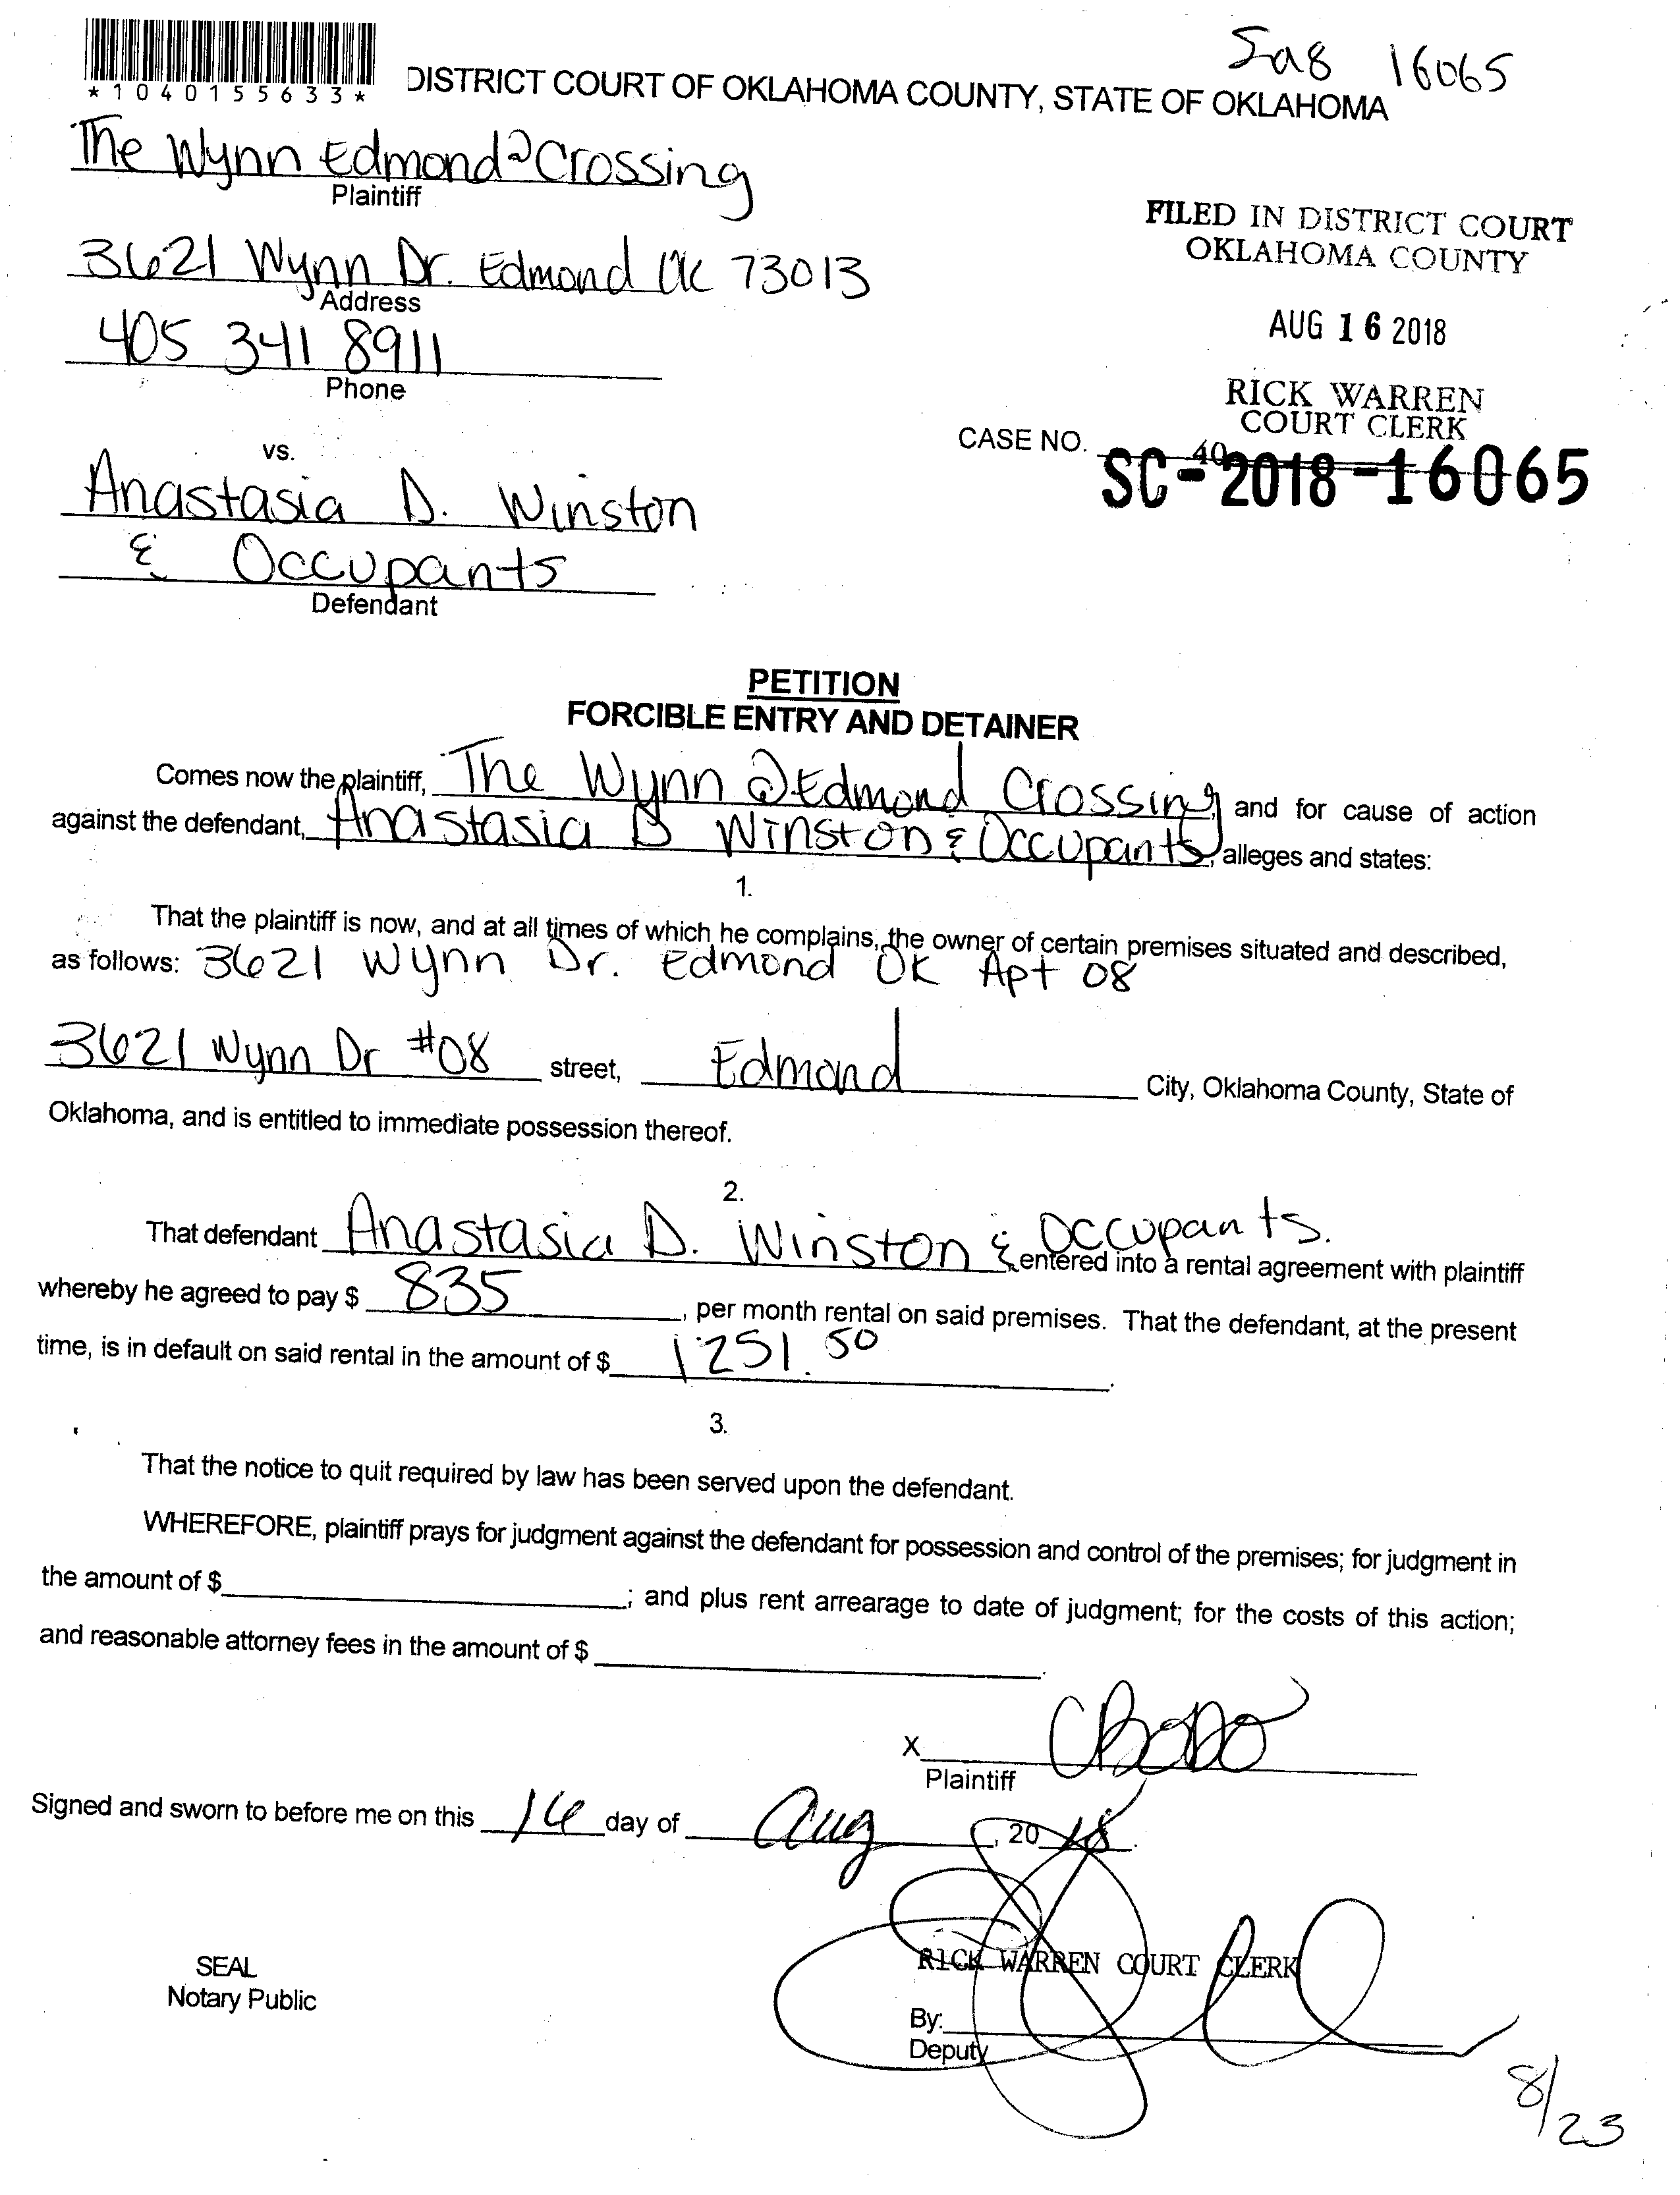 16065
*1040155633*
DISTRICT COURT OF OKLAHOMA COUNTY, STATE OF OKLAHOMA
The Wynn Edmond @ Crossing
Plaintiff
3621 Wynn Dr. Edmond OK 73013
Address
405 341 8911
Phone
FILED IN DISTRICT COURT
OKLAHOMA COUNTY
AUG 16 2018
RICK WARREN
COURT CLERK
40
CASE NO. SC-2018-16065
vs.
Anastasia D. Winston
& Occupants
Defendant
PETITION
FORCIBLE ENTRY AND DETAINER
Comes now the plaintiff, The Wynn @ Edmond Crossing, and for cause of action
against the defendant, Anastasia D Winston & Occupants, alleges and states:
1.
That the plaintiff is now, and at all times of which he complains, the owner of certain premises situated and described,
as follows: 3621 Wynn Dr. Edmond OK Apt 08
3621 Wynn Dr #08 street, Edmond City, Oklahoma County, State of
Oklahoma, and is entitled to immediate possession thereof.
2.
That defendant Anastasia D. Winston & Occupants. entered into a rental agreement with plaintiff
whereby he agreed to pay $ 835, per month rental on said premises. That the defendant, at the present
time, is in default on said rental in the amount of $ 1251.50.
3.
That the notice to quit required by law has been served upon the defendant.
WHEREFORE, plaintiff prays for judgment against the defendant for possession and control of the premises; for judgment in
the amount of $ ; and plus rent arrearage to date of judgment; for the costs of this action;
and reasonable attorney fees in the amount of $ .
X
Plaintiff
Signed and sworn to before me on this 16 day of Aug, 2018.
SEAL
Notary Public
RICK WARREN COURT CLERK
By:
Deputy
8/23